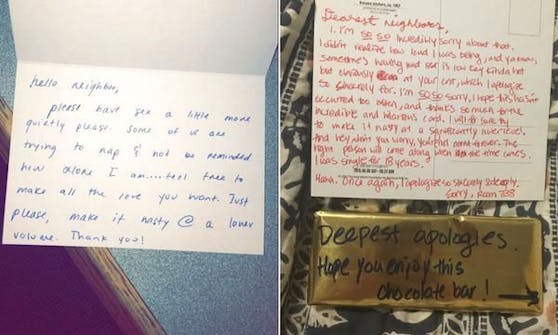 hello neighbor,
please have sex a little more
quietly please. Some of us are
trying to nap & not be reminded
how alone I am.... feel free to
make all the love you want. Just
please, make it nasty @ a lower
volume. Thank you!
Dearest neighbors,
I'm so so incredibly sorry about that.
I didn't realize how loud I was being, and
someone's having mad sex is low key kinda hot
but obviously at your cost, which I apologize
so sincerely for. I'm so so sorry, I hope this hasn't
occurred too often, and thanks so much for the
incredible and hilarious card. I will for sure try
to make it nasty at a significantly lower level.
And hey, don't you worry, you're not alone forever. The
right person will come along when the time comes.
I was single for 18 years.
Haha. Once again, I apologize so sincerely & deeply.
Sorry, Room 733
Deepest apologies.
Hope you enjoy this
chocolate bar!